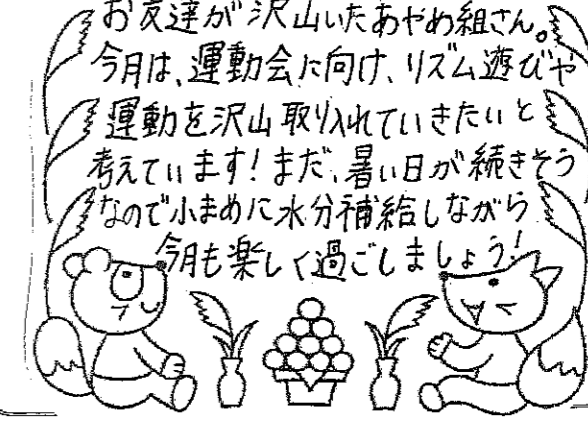 お友達が沢山いたあやめ組さん。
今月は、運動会に向け、リズム遊びや
運動を沢山取り入れていきたいと
考えています！まだ、暑い日が続きそう
なので小まめに水分補給しながら
今月も楽しく過ごしましょう！